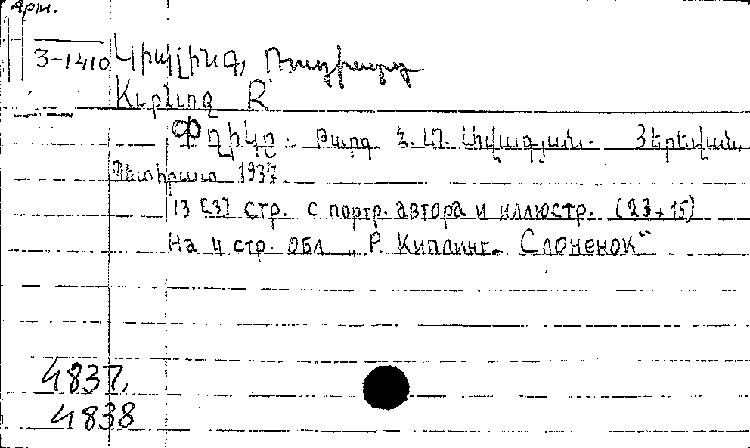 Арм.
3-1410 Կիպլինգ, Ռադիարդ
Kipling R
Փղիկը. Թարգ Հ. Երևան.
Պետհրատ 1937.
13 [3] стр. с портр. автора и иллюстр. (23×15)
На 4 стр. обл „Р. Киплинг. Слоненок“
4837,
4838